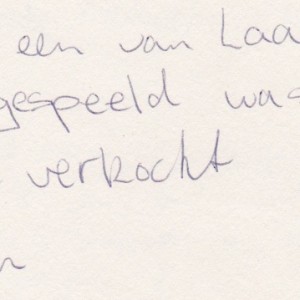 een van Laa
gespeeld was
verkocht